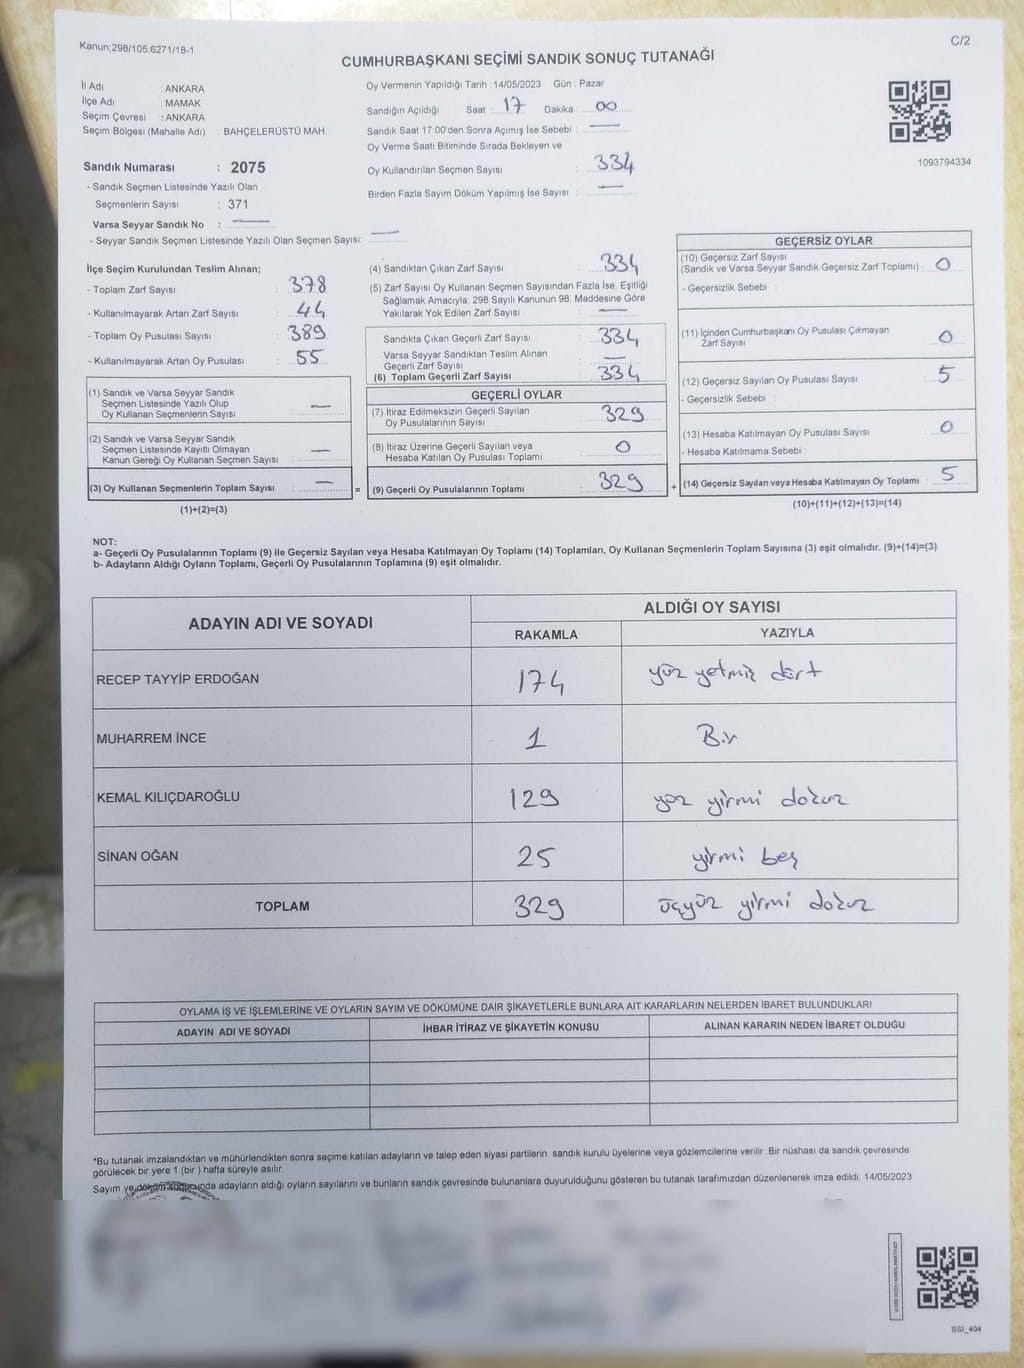 Kanun;298/105,6271/18-1
C/2
CUMHURBAŞKANI SEÇİMİ SANDIK SONUÇ TUTANAĞI
İl Adı : ANKARA
İlçe Adı : MAMAK
Seçim Çevresi : ANKARA
Seçim Bölgesi (Mahalle Adı) : BAHÇELERÜSTÜ MAH.
Sandık Numarası : 2075
- Sandık Seçmen Listesinde Yazılı Olan
Seçmenlerin Sayısı : 371
Varsa Seyyar Sandık No : —
- Seyyar Sandık Seçmen Listesinde Yazılı Olan Seçmen Sayısı: —
Oy Vermenin Yapıldığı Tarih : 14/05/2023 Gün : Pazar
Sandığın Açıldığı Saat : 17 Dakika : 00
Sandık Saat 17:00'den Sonra Açımış İse Sebebi : —
Oy Verme Saati Bitiminde Sırada Bekleyen ve
Oy Kullandırılan Seçmen Sayısı : 334
Birden Fazla Sayım Döküm Yapılmış İse Sayısı : —
1093794334
İlçe Seçim Kurulundan Teslim Alınan;
- Toplam Zarf Sayısı : 378
- Kullanılmayarak Artan Zarf Sayısı : 44
- Toplam Oy Pusulası Sayısı : 389
- Kullanılmayarak Artan Oy Pusulası : 55
(1) Sandık ve Varsa Seyyar Sandık
Seçmen Listesinde Yazılı Olup
Oy Kullanan Seçmenlerin Sayısı : —
(2) Sandık ve Varsa Seyyar Sandık
Seçmen Listesinde Kayıtlı Olmayan
Kanun Gereği Oy Kullanan Seçmen Sayısı : —
(3) Oy Kullanan Seçmenlerin Toplam Sayısı : — =
(1)+(2)=(3)
(4) Sandıktan Çıkan Zarf Sayısı : 334
(5) Zarf Sayısı Oy Kullanan Seçmen Sayısından Fazla İse, Eşitliği
Sağlamak Amacıyla; 298 Sayılı Kanunun 98. Maddesine Göre
Yakılarak Yok Edilen Zarf Sayısı : —
Sandıkta Çıkan Geçerli Zarf Sayısı : 334
Varsa Seyyar Sandıktan Teslim Alınan
Geçerli Zarf Sayısı : —
(6) Toplam Geçerli Zarf Sayısı : 334
GEÇERLİ OYLAR
(7) İtiraz Edilmeksizin Geçerli Sayılan
Oy Pusulalarının Sayısı : 329
(8) İtiraz Üzerine Geçerli Sayılan veya
Hesaba Katılan Oy Pusulası Toplamı : 0
(9) Geçerli Oy Pusulalarının Toplamı : 329 +
GEÇERSİZ OYLAR
(10) Geçersiz Zarf Sayısı
(Sandık ve Varsa Seyyar Sandık Geçersiz Zarf Toplamı) : 0
- Geçersizlik Sebebi :
(11) İçinden Cumhurbaşkanı Oy Pusulası Çıkmayan
Zarf Sayısı : 0
(12) Geçersiz Sayılan Oy Pusulası Sayısı : 5
- Geçersizlik Sebebi :
(13) Hesaba Katılmayan Oy Pusulası Sayısı : 0
- Hesaba Katılmama Sebebi :
(14) Geçersiz Sayılan veya Hesaba Katılmayan Oy Toplamı : 5
(10)+(11)+(12)+(13)=(14)
NOT:
a- Geçerli Oy Pusulalarının Toplamı (9) ile Geçersiz Sayılan veya Hesaba Katılmayan Oy Toplamı (14) Toplamları, Oy Kullanan Seçmenlerin Toplam Sayısına (3) eşit olmalıdır. (9)+(14)=(3)
b- Adayların Aldığı Oyların Toplamı, Geçerli Oy Pusulalarının Toplamına (9) eşit olmalıdır.
ADAYIN ADI VE SOYADI ALDIĞI OY SAYISI
RAKAMLA YAZIYLA
RECEP TAYYİP ERDOĞAN 174 yüz yetmiş dört
MUHARREM İNCE 1 Bir
KEMAL KILIÇDAROĞLU 129 yüz yirmi dokuz
SİNAN OĞAN 25 yirmi beş
TOPLAM 329 üçyüz yirmi dokuz
OYLAMA İŞ VE İŞLEMLERİNE VE OYLARIN SAYIM VE DÖKÜMÜNE DAİR ŞİKAYETLERLE BUNLARA AİT KARARLARIN NELERDEN İBARET BULUNDUKLARI
ADAYIN ADI VE SOYADI İHBAR İTİRAZ VE ŞİKAYETİN KONUSU ALINAN KARARIN NEDEN İBARET OLDUĞU
*Bu tutanak imzalandıktan ve mühürlendikten sonra seçime katılan adayların ve talep eden siyasi partilerin sandık kurulu üyelerine veya gözlemcilerine verilir. Bir nüshası da sandık çevresinde
görülecek bir yere 1 (bir ) hafta süreyle asılır.
Sayım ve döküm sonucunda adayların aldığı oyların sayılarını ve bunların sandık çevresinde bulunanlara duyurulduğunu gösteren bu tutanak tarafımızdan düzenlenerek imza edildi. 14/05/2023
SSI_404